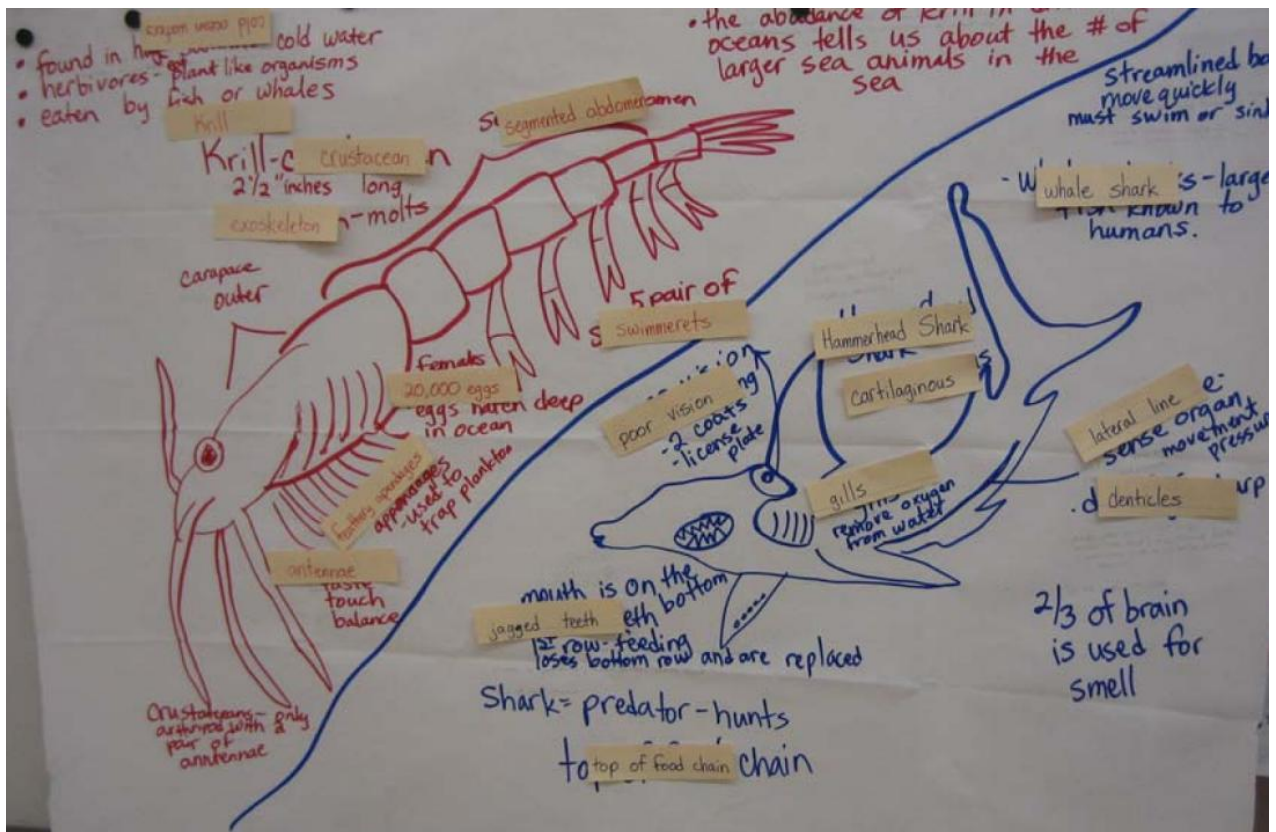 cold ocean waters
• found in huge cold water
• herbivores - plant like organisms
• eaten by fish or whales
Krill
Krill-c crustacean n
2 1/2" inches long
exoskeleton n-molts
segmented abdomen men
carapace
outer
5 pair of
swimmerets
females
20,000 eggs
eggs hatch deep
in ocean
feathery apendages
appendages
-used to
trap plankton
antennae
taste
touch
balance
Crustaceans - only
arthropod with 2
pair of
anntennae
• the abundance of krill in
oceans tells us about the # of
larger sea animals in the
sea
streamlined bo
move quickly
must swim or sink
- W whale shark is - large
fish known to
humans.
Hammerhead Shark
Shark
cartilaginous
poor vision
- 2 coats
- license
plate
gills
remove oxygen
from water
lateral line e-
sense organ
movement
pressu
denticles
mouth is on the
bottom
jagged teeth
1st row - feeding
loses bottom row and are replaced
2/3 of brain
is used for
smell
Shark = predator - hunts
to top of food chain chain